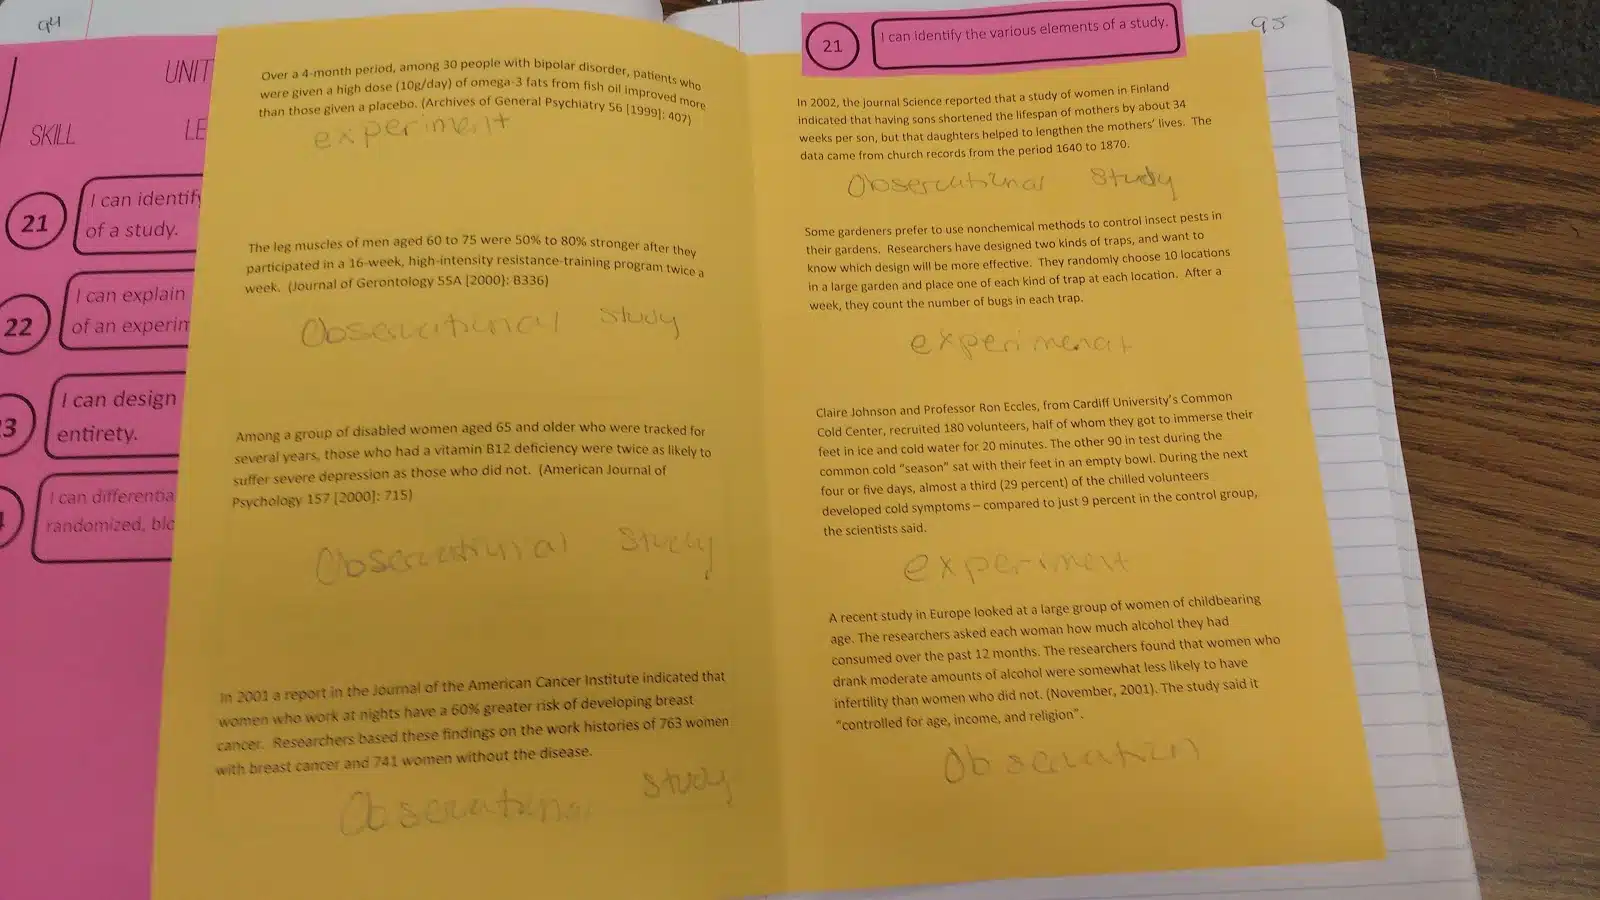 94
UNIT
SKILL
LE
21
I can identify
of a study.
22
I can explain
of an experim
3
I can design
entirety.
I can differentia
randomized, blo
Over a 4-month period, among 30 people with bipolar disorder, patients who
were given a high dose (10g/day) of omega-3 fats from fish oil improved more
than those given a placebo. (Archives of General Psychiatry 56 [1999]: 407)
experiment
The leg muscles of men aged 60 to 75 were 50% to 80% stronger after they
participated in a 16-week, high-intensity resistance-training program twice a
week. (Journal of Gerontology 55A [2000]: B336)
Observational study
Among a group of disabled women aged 65 and older who were tracked for
several years, those who had a vitamin B12 deficiency were twice as likely to
suffer severe depression as those who did not. (American Journal of
Psychology 157 [2000]: 715)
Observational study
In 2001 a report in the Journal of the American Cancer Institute indicated that
women who work at nights have a 60% greater risk of developing breast
cancer. Researchers based these findings on the work histories of 763 women
with breast cancer and 741 women without the disease.
Observational study
95
21
I can identify the various elements of a study.
In 2002, the journal Science reported that a study of women in Finland
indicated that having sons shortened the lifespan of mothers by about 34
weeks per son, but that daughters helped to lengthen the mothers' lives. The
data came from church records from the period 1640 to 1870.
Observational study
Some gardeners prefer to use nonchemical methods to control insect pests in
their gardens. Researchers have designed two kinds of traps, and want to
know which design will be more effective. They randomly choose 10 locations
in a large garden and place one of each kind of trap at each location. After a
week, they count the number of bugs in each trap.
experiment
Claire Johnson and Professor Ron Eccles, from Cardiff University's Common
Cold Center, recruited 180 volunteers, half of whom they got to immerse their
feet in ice and cold water for 20 minutes. The other 90 in test during the
common cold "season" sat with their feet in an empty bowl. During the next
four or five days, almost a third (29 percent) of the chilled volunteers
developed cold symptoms – compared to just 9 percent in the control group,
the scientists said.
experiment
A recent study in Europe looked at a large group of women of childbearing
age. The researchers asked each woman how much alcohol they had
consumed over the past 12 months. The researchers found that women who
drank moderate amounts of alcohol were somewhat less likely to have
infertility than women who did not. (November, 2001). The study said it
"controlled for age, income, and religion".
Observation